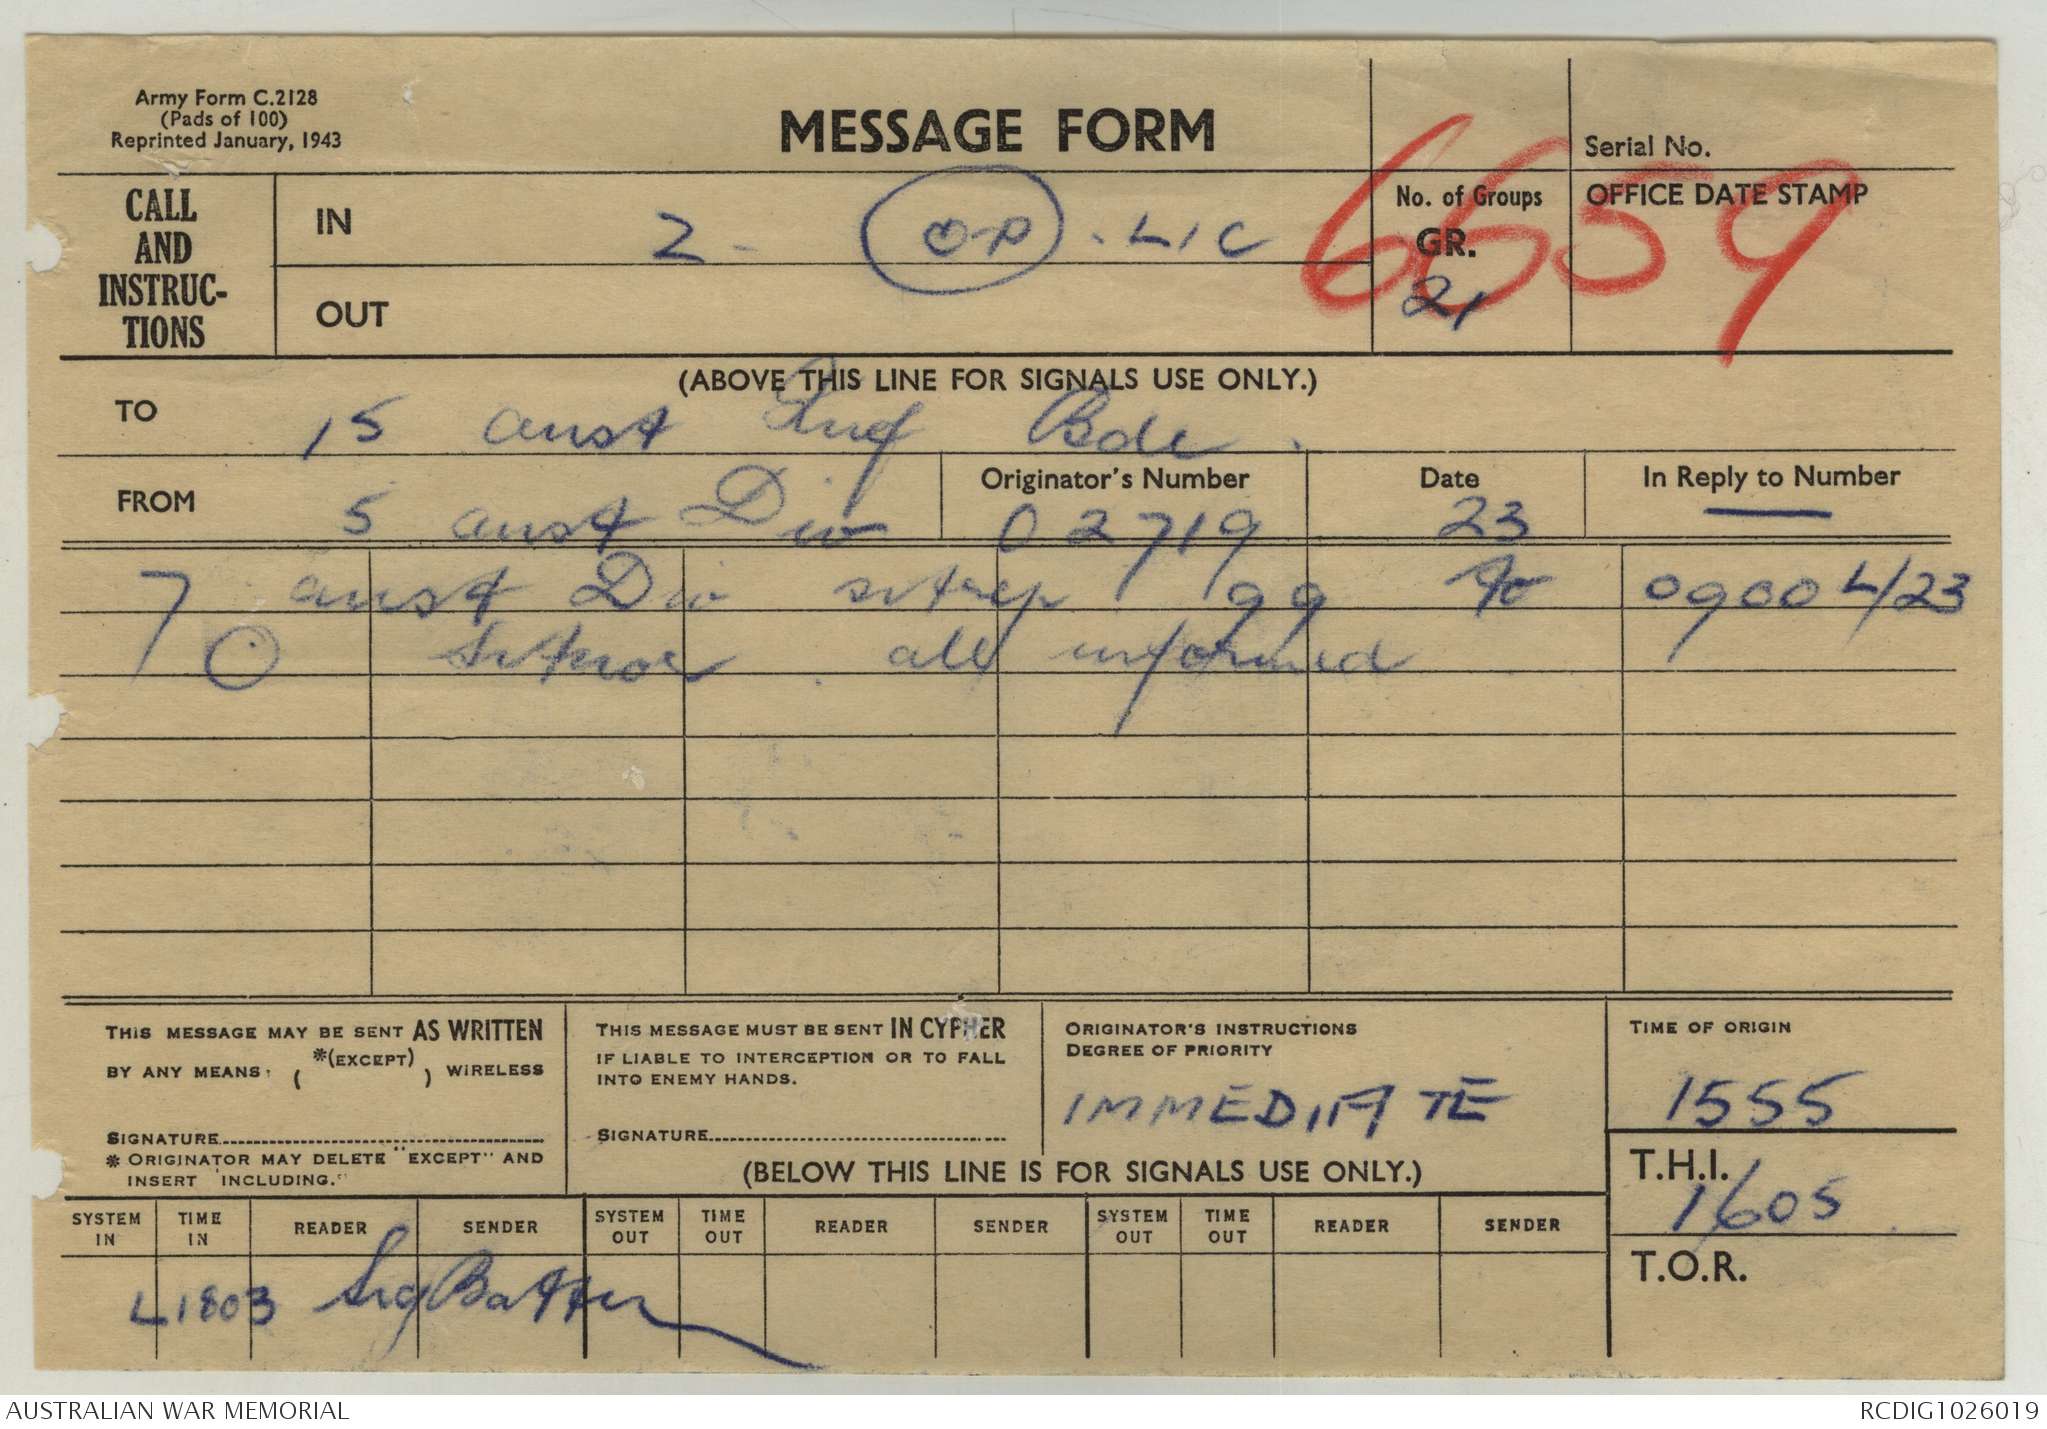 Army Form C.2128
(Pads of 100)
Reprinted January, 1943
MESSAGE FORM
Serial No.
CALL AND INSTRUC-TIONS
IN
2 - OP . LIC
OUT
No. of Groups
GR.
21
OFFICE DATE STAMP
6659
(ABOVE THIS LINE FOR SIGNALS USE ONLY.)
TO
15 aust Inf Bde.
FROM
5 aust Div
Originator's Number
02719
Date
23
In Reply to Number
—
7 aust Div sitrep 99 to 0900 L/23
O . all informed
THIS MESSAGE MAY BE SENT AS WRITTEN
BY ANY MEANS: (*(EXCEPT)) WIRELESS
SIGNATURE
* ORIGINATOR MAY DELETE "EXCEPT" AND
INSERT 'INCLUDING."
THIS MESSAGE MUST BE SENT IN CYPHER
IF LIABLE TO INTERCEPTION OR TO FALL
INTO ENEMY HANDS.
SIGNATURE
ORIGINATOR'S INSTRUCTIONS
DEGREE OF PRIORITY
IMMEDIATE
(BELOW THIS LINE IS FOR SIGNALS USE ONLY.)
TIME OF ORIGIN
1555
T.H.I.
1605
T.O.R.
SYSTEM IN TIME IN READER SENDER SYSTEM OUT TIME OUT READER SENDER SYSTEM OUT TIME OUT READER SENDER
L 1803 Sig
AUSTRALIAN WAR MEMORIAL
RCDIG1026019